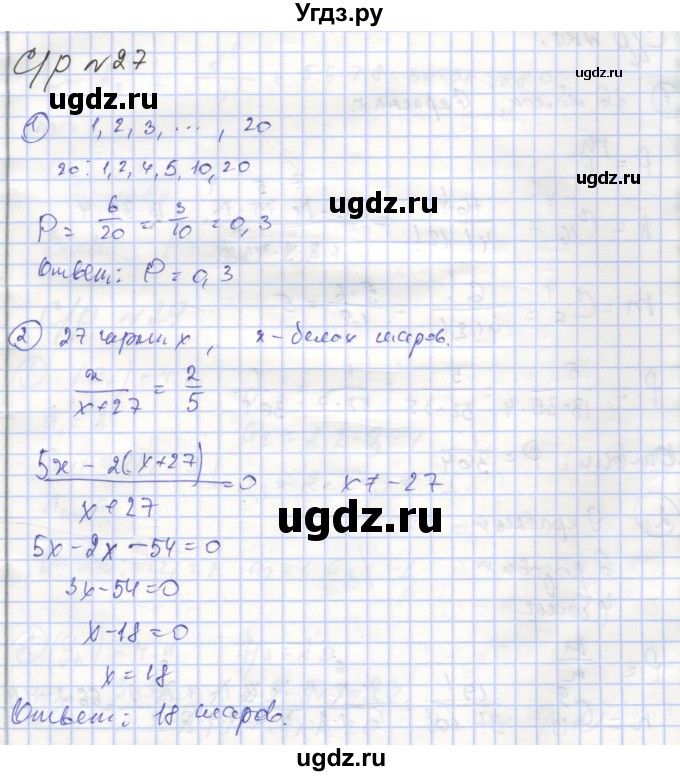 Угдз.ру
С/р №27
ugdz.ru
ugdz.ru
① 1, 2, 3, ..., 20
20: 1, 2, 4, 5, 10, 20
ugdz.ru
ugdz.ru
P = 6/20 = 3/10 = 0,3
Ответ: P = 0,3
② 27 черных, x - белых шаров.
ugdz.ru
x/(x+27) = 2/5
(5x - 2(x+27))/(x+27) = 0 x ≠ -27
ugdz.ru
ugdz.ru
5x - 2x - 54 = 0
3x - 54 = 0
x - 18 = 0
x = 18
ugdz.ru
Ответ: 18 шаров.
ugdz.ru
ugdz.ru